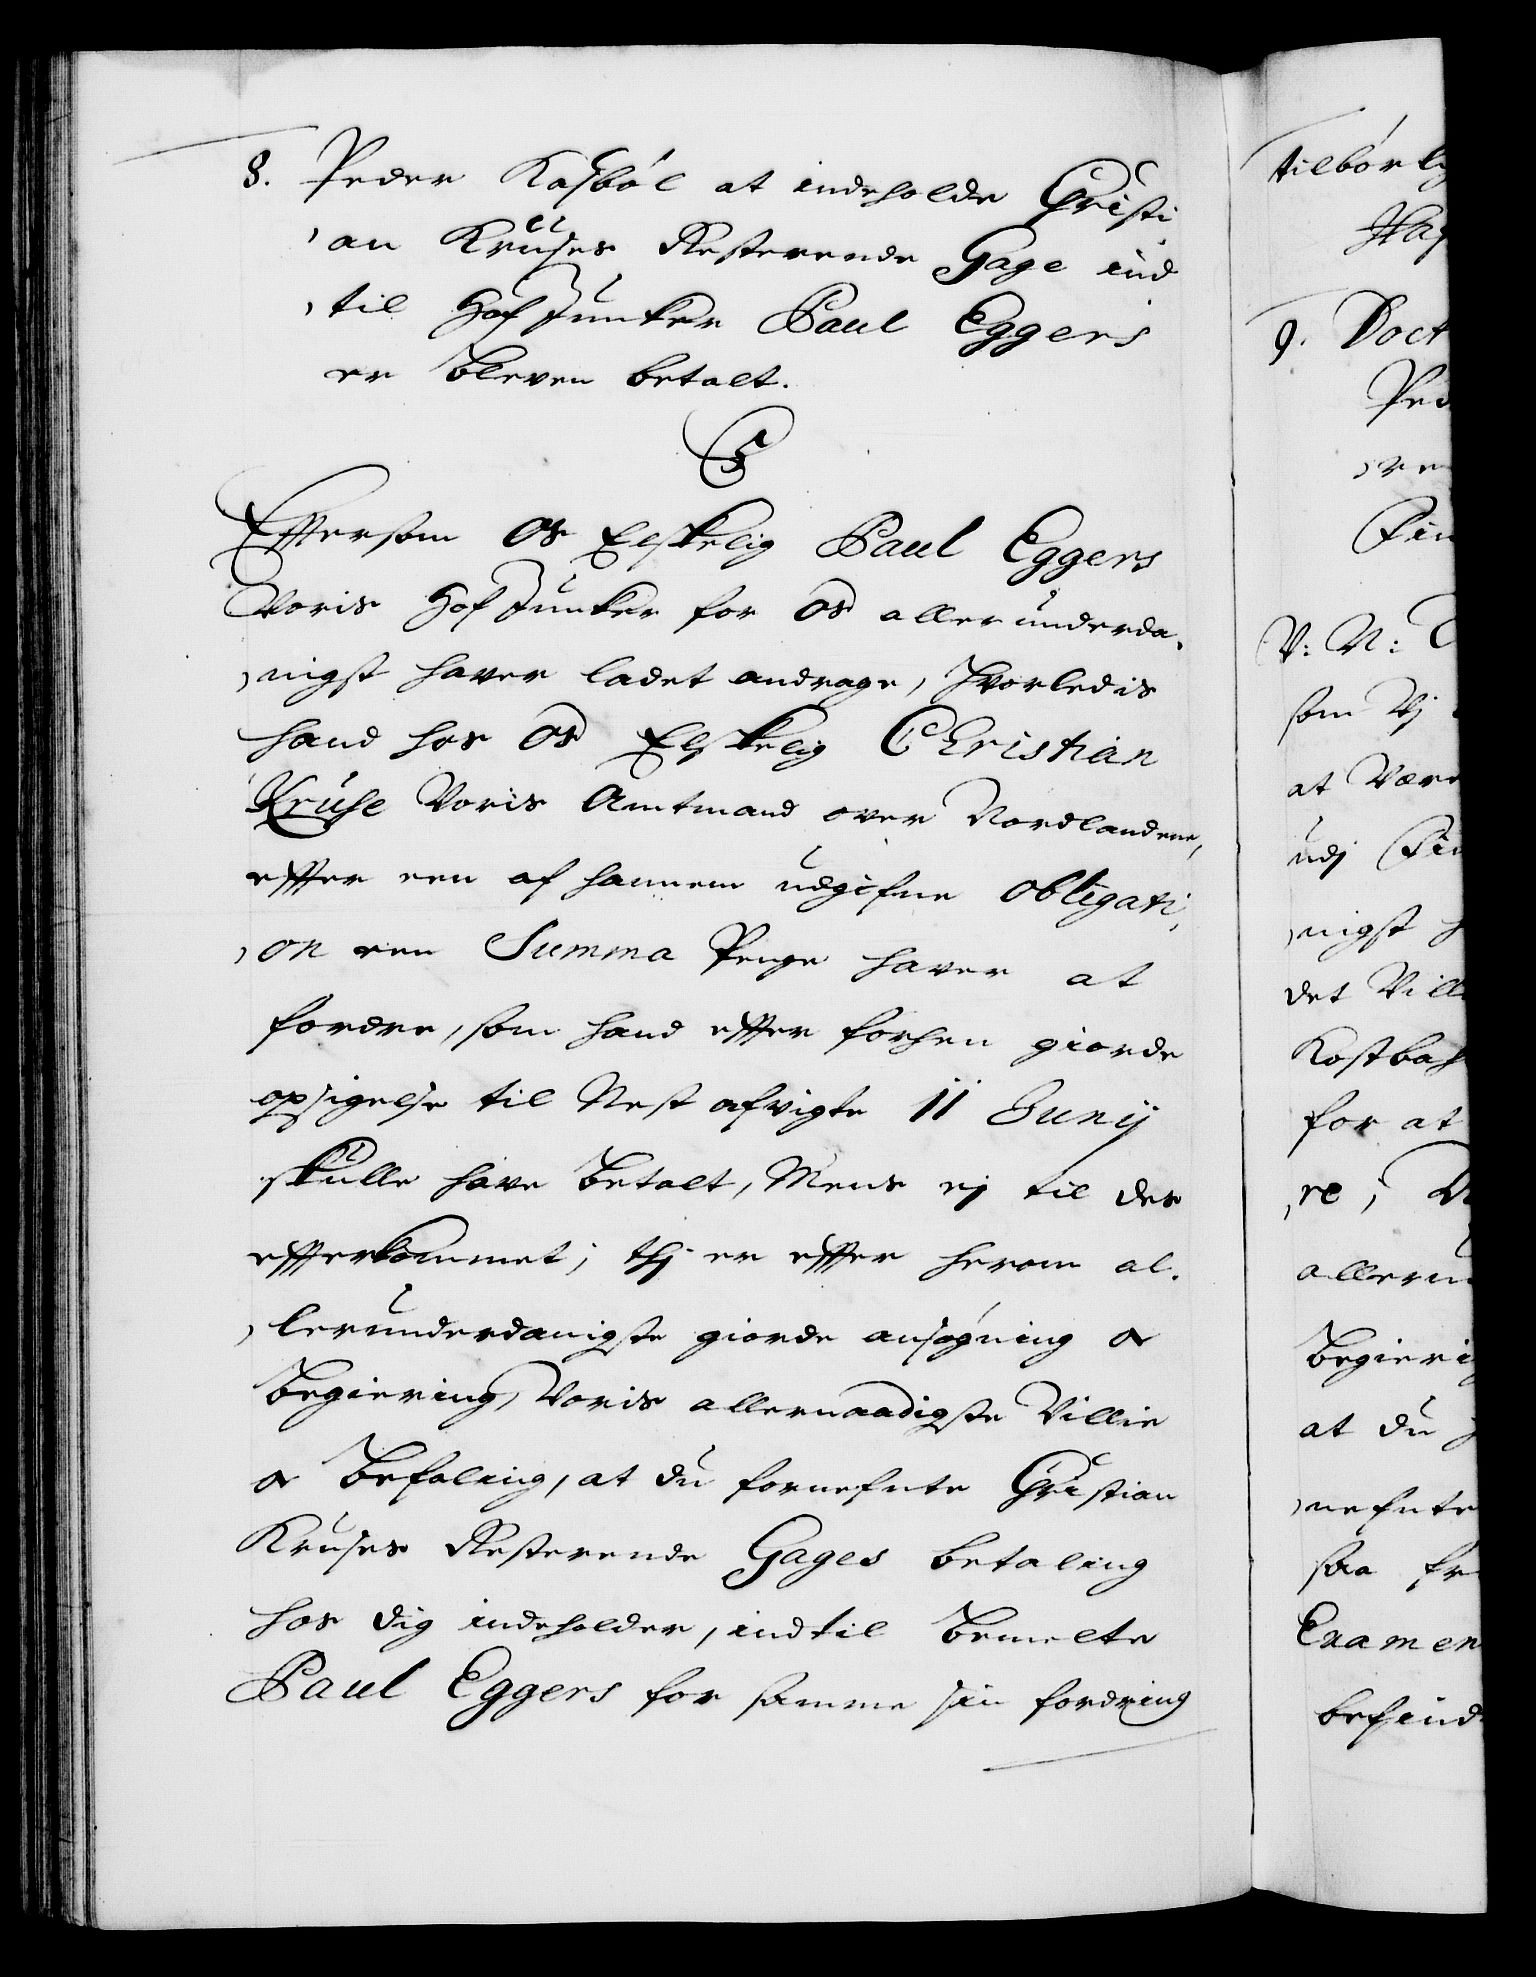 8. Peder Kasböl at indeholde Christi
,an Kruses Resterende Gage ind
,til Hof Junker Paul Eggers
er bleven betalt.
C5
Effersom Os Elskelig Paul Eggers
Voris Hof Junker for Os allerunderda,
,nigst haver ladet andrage, hvorledis
hand hos Os Elskelig Christian
Kruse Voris Amtmand over Nordlandene,
effter een af hannem udgifne Obligati,
,on een Summa Penge haver at
fordre, som hand effter forhen giorde
opsigelse til Nest afvigte 11 Junij
skulle have betalt, Mens ej til des
effterkommet; thj er effter herom al,
,lerunderdanigste giorde ansøgning oc
Begiering, Voris allernaadigste Villie
oc Befaling, at du fornefnte Christian
Kruses Resterende Gages betaling
hos dig indeholder, indtil bemelte
Paul Eggers for samme sin fordring
tilbörlig
9. Doct
Ped
V: N:
som Vj
at Være
udj Fin
,nigst h
det Ville
Kostbah
for at
,re,
allerun
Begierin
at du
,nefnte
saa fr
Examen
befind